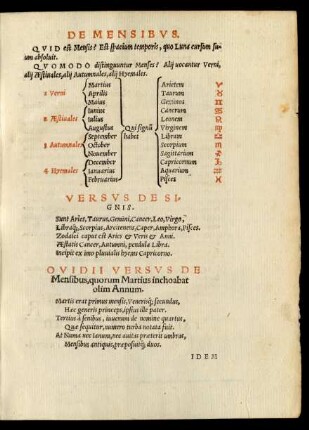 DE MENSIBVS.
QVID est Mensis? Est spacium temporis, quo Luna cursum su-
um absoluit.
QVOMODO distinguuntur Menses? Alij uocantur Verni,
alij Æstiuales, alij Autumnales, alij Hyemales.
Martius Arietem ♈
1 Verni Aprilis Taurum ♉
Maius Gemina ♊
Iunius Cancrum ♋
2 Æstiuales Iulius Leonem ♌
Augustus Qui signũ Virginem ♍
September habet Libram ♎
3 Autumnales October Scorpium ♏
Nouember Sagittarium ♐
December Capricornum ♑
4 Hyemales Ianuarius Aquarium ♒
Februarius Pisces ♓
VERSVS DE SI-
GNIS.
Sunt Aries, Taurus, Gemini, Cancer, Leo, Virgo,
Libraq́;, Scorpius, Arcitenens, Caper, Amphora, Pisces.
Zodiaci caput est Aries & Veris & Anni.
Æstatis Cancer, Autumni, pendula Libra.
Incipit ex imo pluuialis hyems Capricorno.
OVIDII VERSVS DE
Mensibus, quorum Martius inchoabat
olim Annum.
Martis erat primus mensis, Venerisq́; secundus,
Hæc generis princeps, ipsius ille pater.
Tertius à senibus, iuuenum de nomine quartus,
Quæ sequitur, numero turba notata fuit.
At Numa nec Ianum, nec auitas præterit umbras,
Mensibus antiquis, præposuitq́; duos.
IDEM